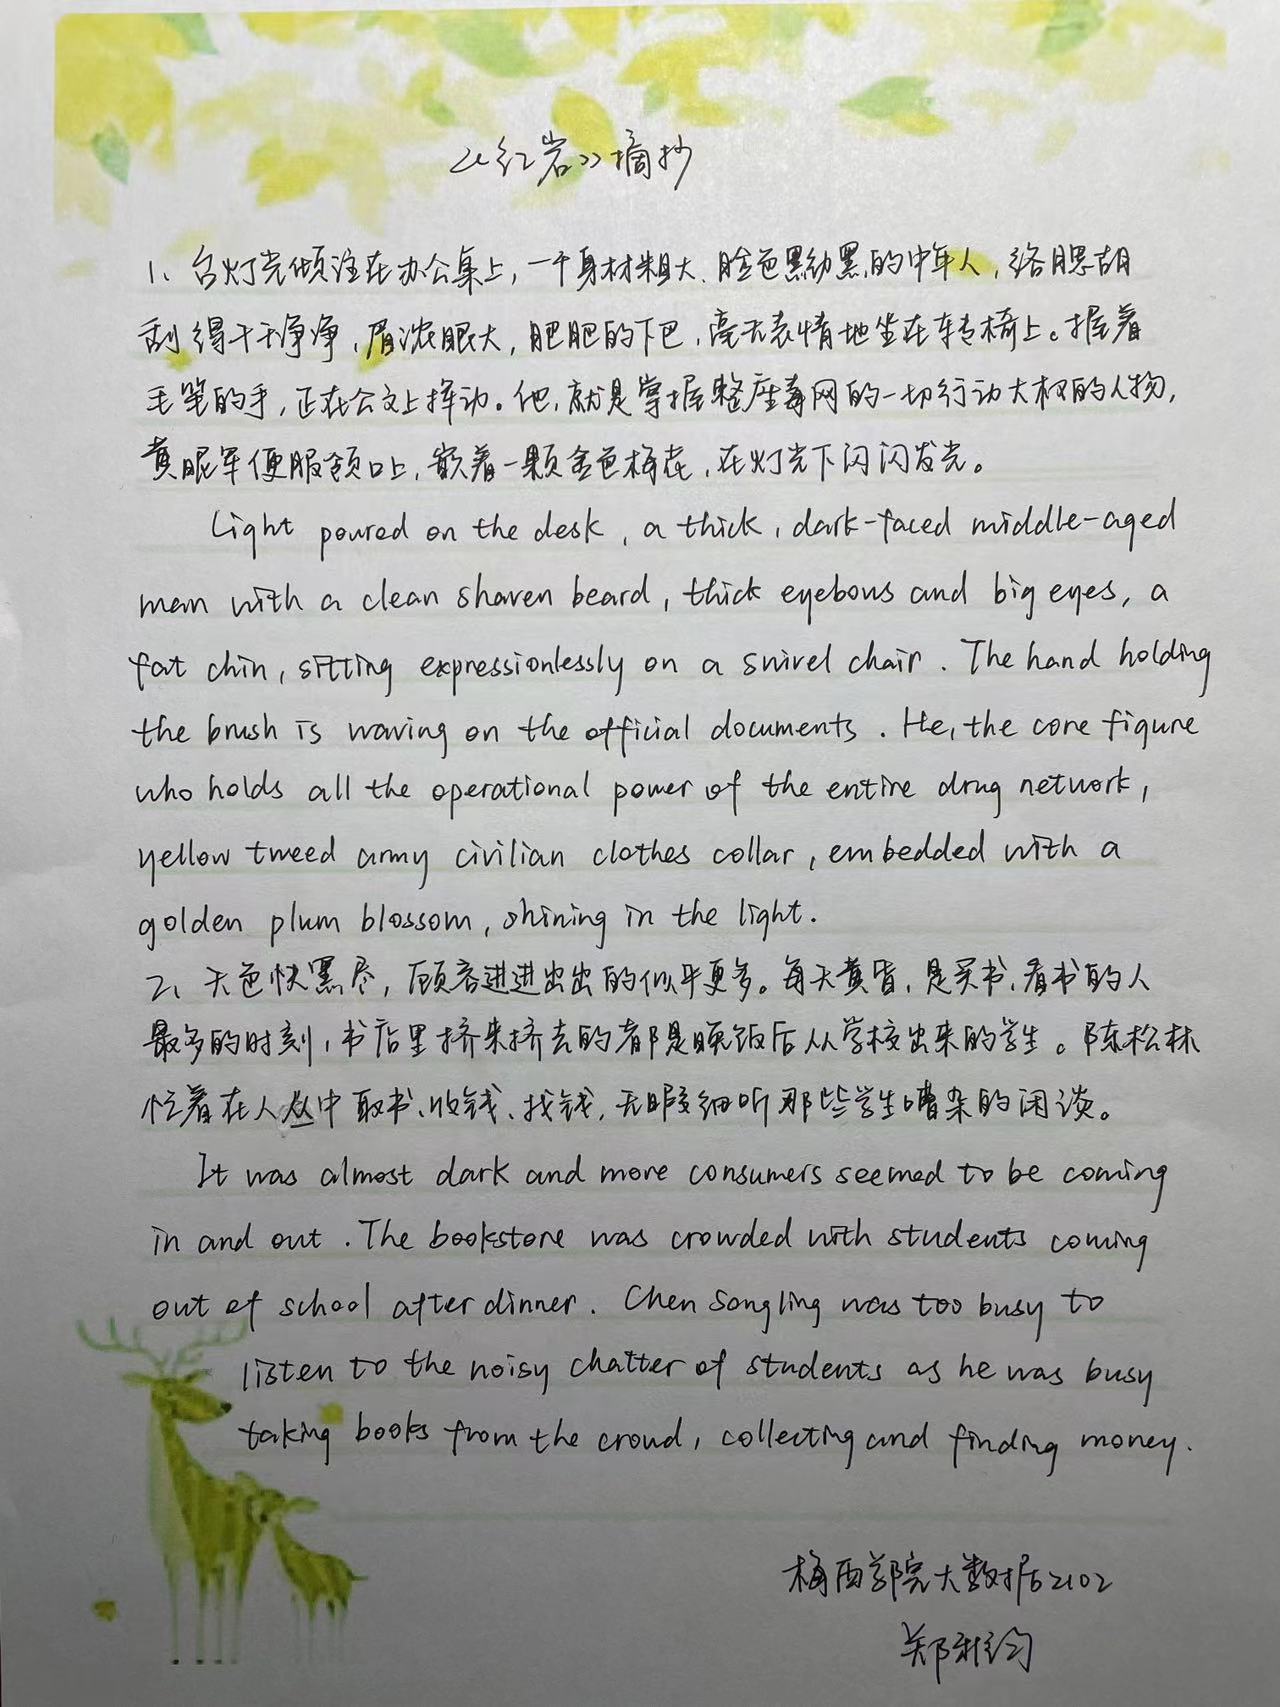 《红岩》摘抄
1、台灯光倾注在办公桌上，一个身材粗大、脸色黑黝黑的中年人，络腮胡
刮得干干净净，眉浓眼大，肥肥的下巴，毫无表情地坐在转椅上。握着
毛笔的手，正在公文上挥动。他，就是掌握整座毒网的一切行动大权的人物，
黄呢军便服领口上，嵌着一颗金色梅花，在灯光下闪闪发光。
Light poured on the desk, a thick, dark-faced middle-aged
man with a clean shaven beard, thick eyebous and big eyes, a
fat chin, sitting expressionlessly on a swivel chair. The hand holding
the brush is waving on the official documents. He, the core figure
who holds all the operational power of the entire drug network,
yellow tweed army civilian clothes collar, embedded with a
golden plum blossom, shining in the light.
2、天色快黑尽，顾客进进出出的似乎更多。每天黄昏，是买书、看书的人
最多的时刻，书店里挤来挤去的都是晚饭后从学校出来的学生。陈松林
忙着在人丛中取书、收钱、找钱，无暇细听那些学生嘈杂的闲谈。
It was almost dark and more consumers seemed to be coming
in and out. The bookstore was crowded with students coming
out of school after dinner. Chen Songling was too busy to
listen to the noisy chatter of students as he was busy
taking books from the crowd, collecting and finding money.
梅西学院大数据2102
郑雅纯